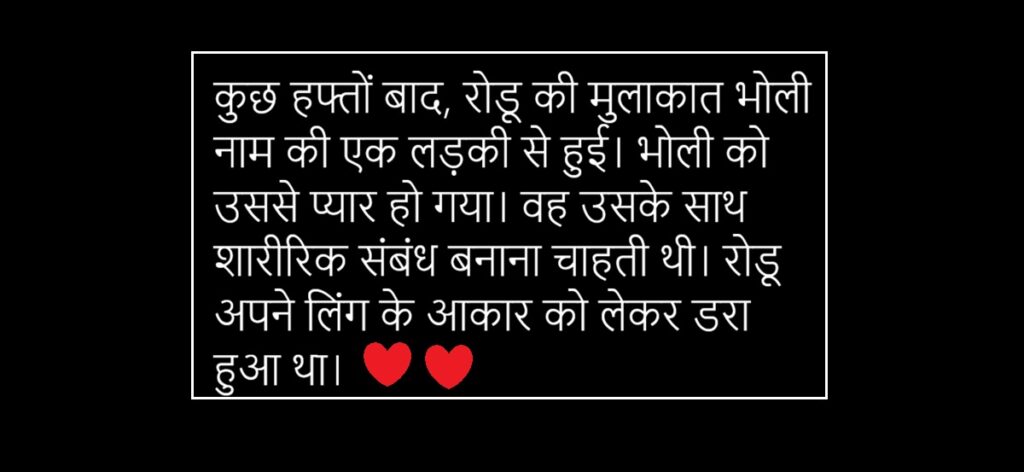 कुछ हफ्तों बाद, रोडू की मुलाकात भोली
नाम की एक लड़की से हुई। भोली को
उससे प्यार हो गया। वह उसके साथ
शारीरिक संबंध बनाना चाहती थी। रोडू
अपने लिंग के आकार को लेकर डरा
हुआ था। ❤️❤️